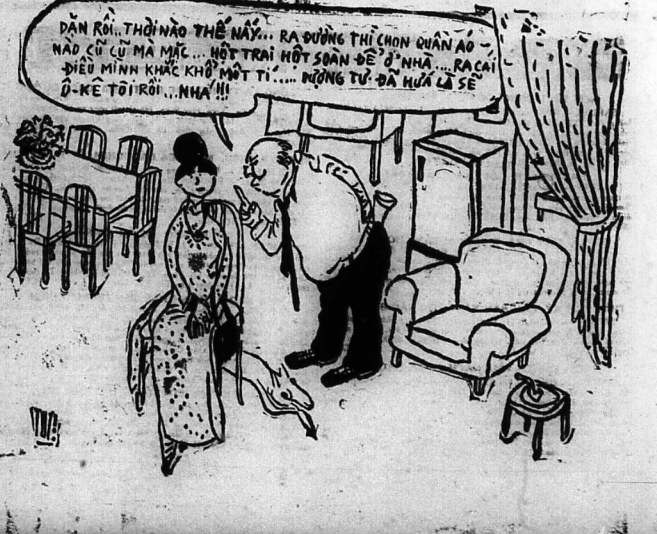 DẶN RỒI.. THỜI NÀO THẾ NẤY... RA ĐƯỜNG THÌ CHỌN QUẦN ÁO
NÀO CŨ CŨ MÀ MẶC... HỘT TRAI HỘT SOÀN ĐỂ Ở NHÀ.... RA CÁI
ĐIỀU MÌNH KHẮC KHỔ MỘT TÍ..... DƯỢNG TƯ ĐÃ HỨA LÀ SẼ
Ô-KÊ TÔI RỒI...NHÁ!!!